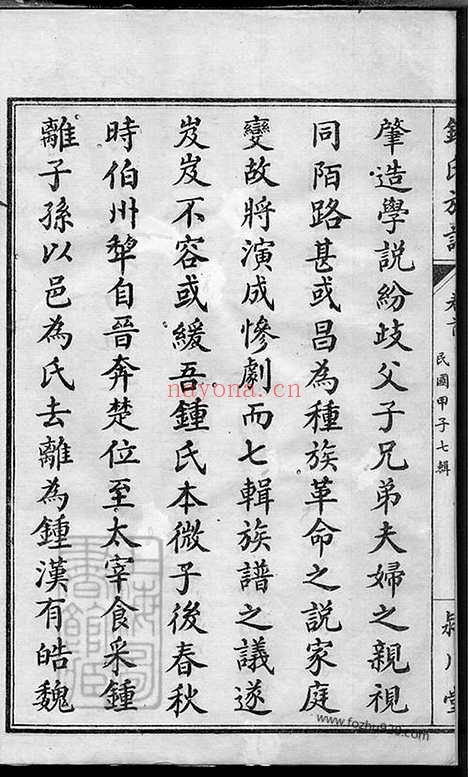 鍾氏族譜
卷首
民國甲子七輯
潁川堂
肇造學說紛歧父子兄弟夫婦之親視
同陌路甚或昌為種族革命之說家庭
變故將演成慘劇而七輯族譜之議遂
岌岌不容或緩吾鍾氏本微子後春秋
時伯州犂自晉奔楚位至太宰食采鍾
離子孫以邑為氏去離為鍾漢有皓魏
nayona.cn
www.fozhu920.com